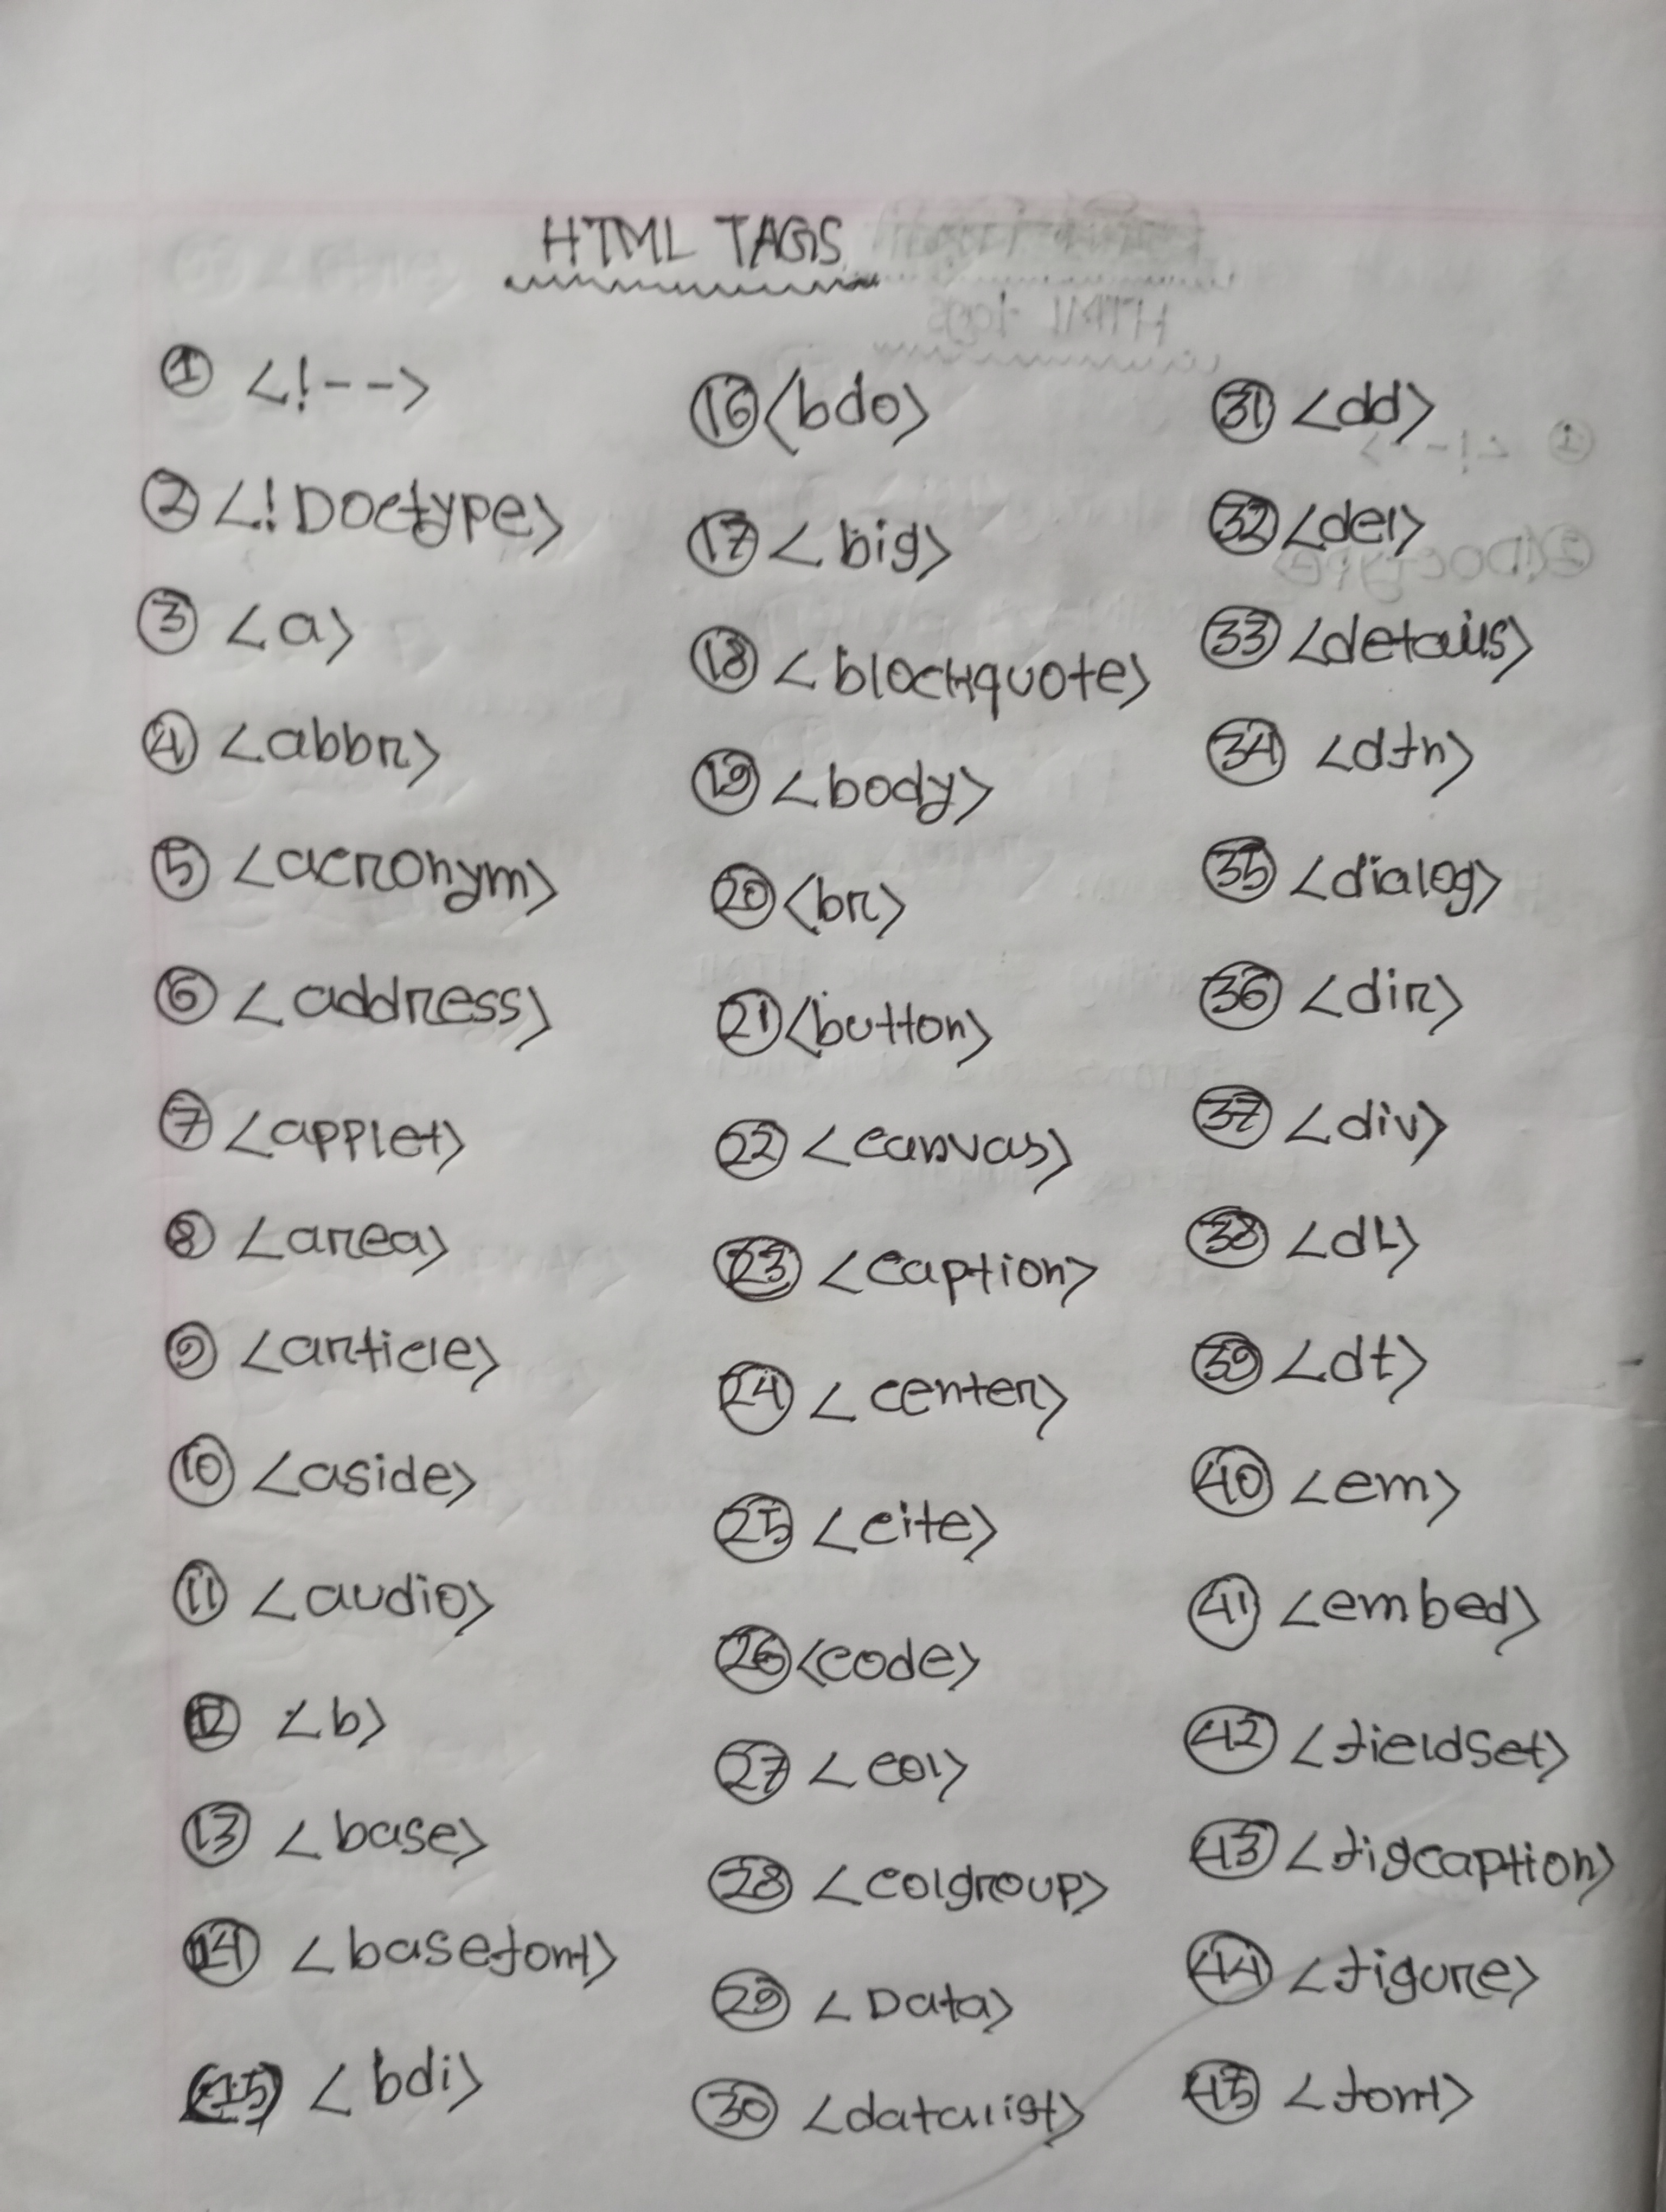 HTML TAGS
① <!-->
② <!Doctype>
③ <a>
④ <abbr>
⑤ <acronym>
⑥ <address>
⑦ <applet>
⑧ <area>
⑨ <article>
⑩ <aside>
⑪ <audio>
⑫ <b>
⑬ <base>
⑭ <basefont>
⑮ <bdi>
⑯ <bdo>
⑰ <big>
⑱ <blockquote>
⑲ <body>
⑳ <br>
㉑ <button>
㉒ <canvas>
㉓ <caption>
㉔ <center>
㉕ <cite>
㉖ <code>
㉗ <col>
㉘ <colgroup>
㉙ <Data>
㉚ <datalist>
㉛ <dd>
㉜ <del>
㉝ <details>
㉞ <dfn>
㉟ <dialog>
㊱ <dir>
㊲ <div>
㊳ <dL>
㊴ <dt>
㊵ <em>
㊶ <embed>
㊷ <fieldSet>
㊸ <figcaption>
㊹ <figure>
㊺ <font>